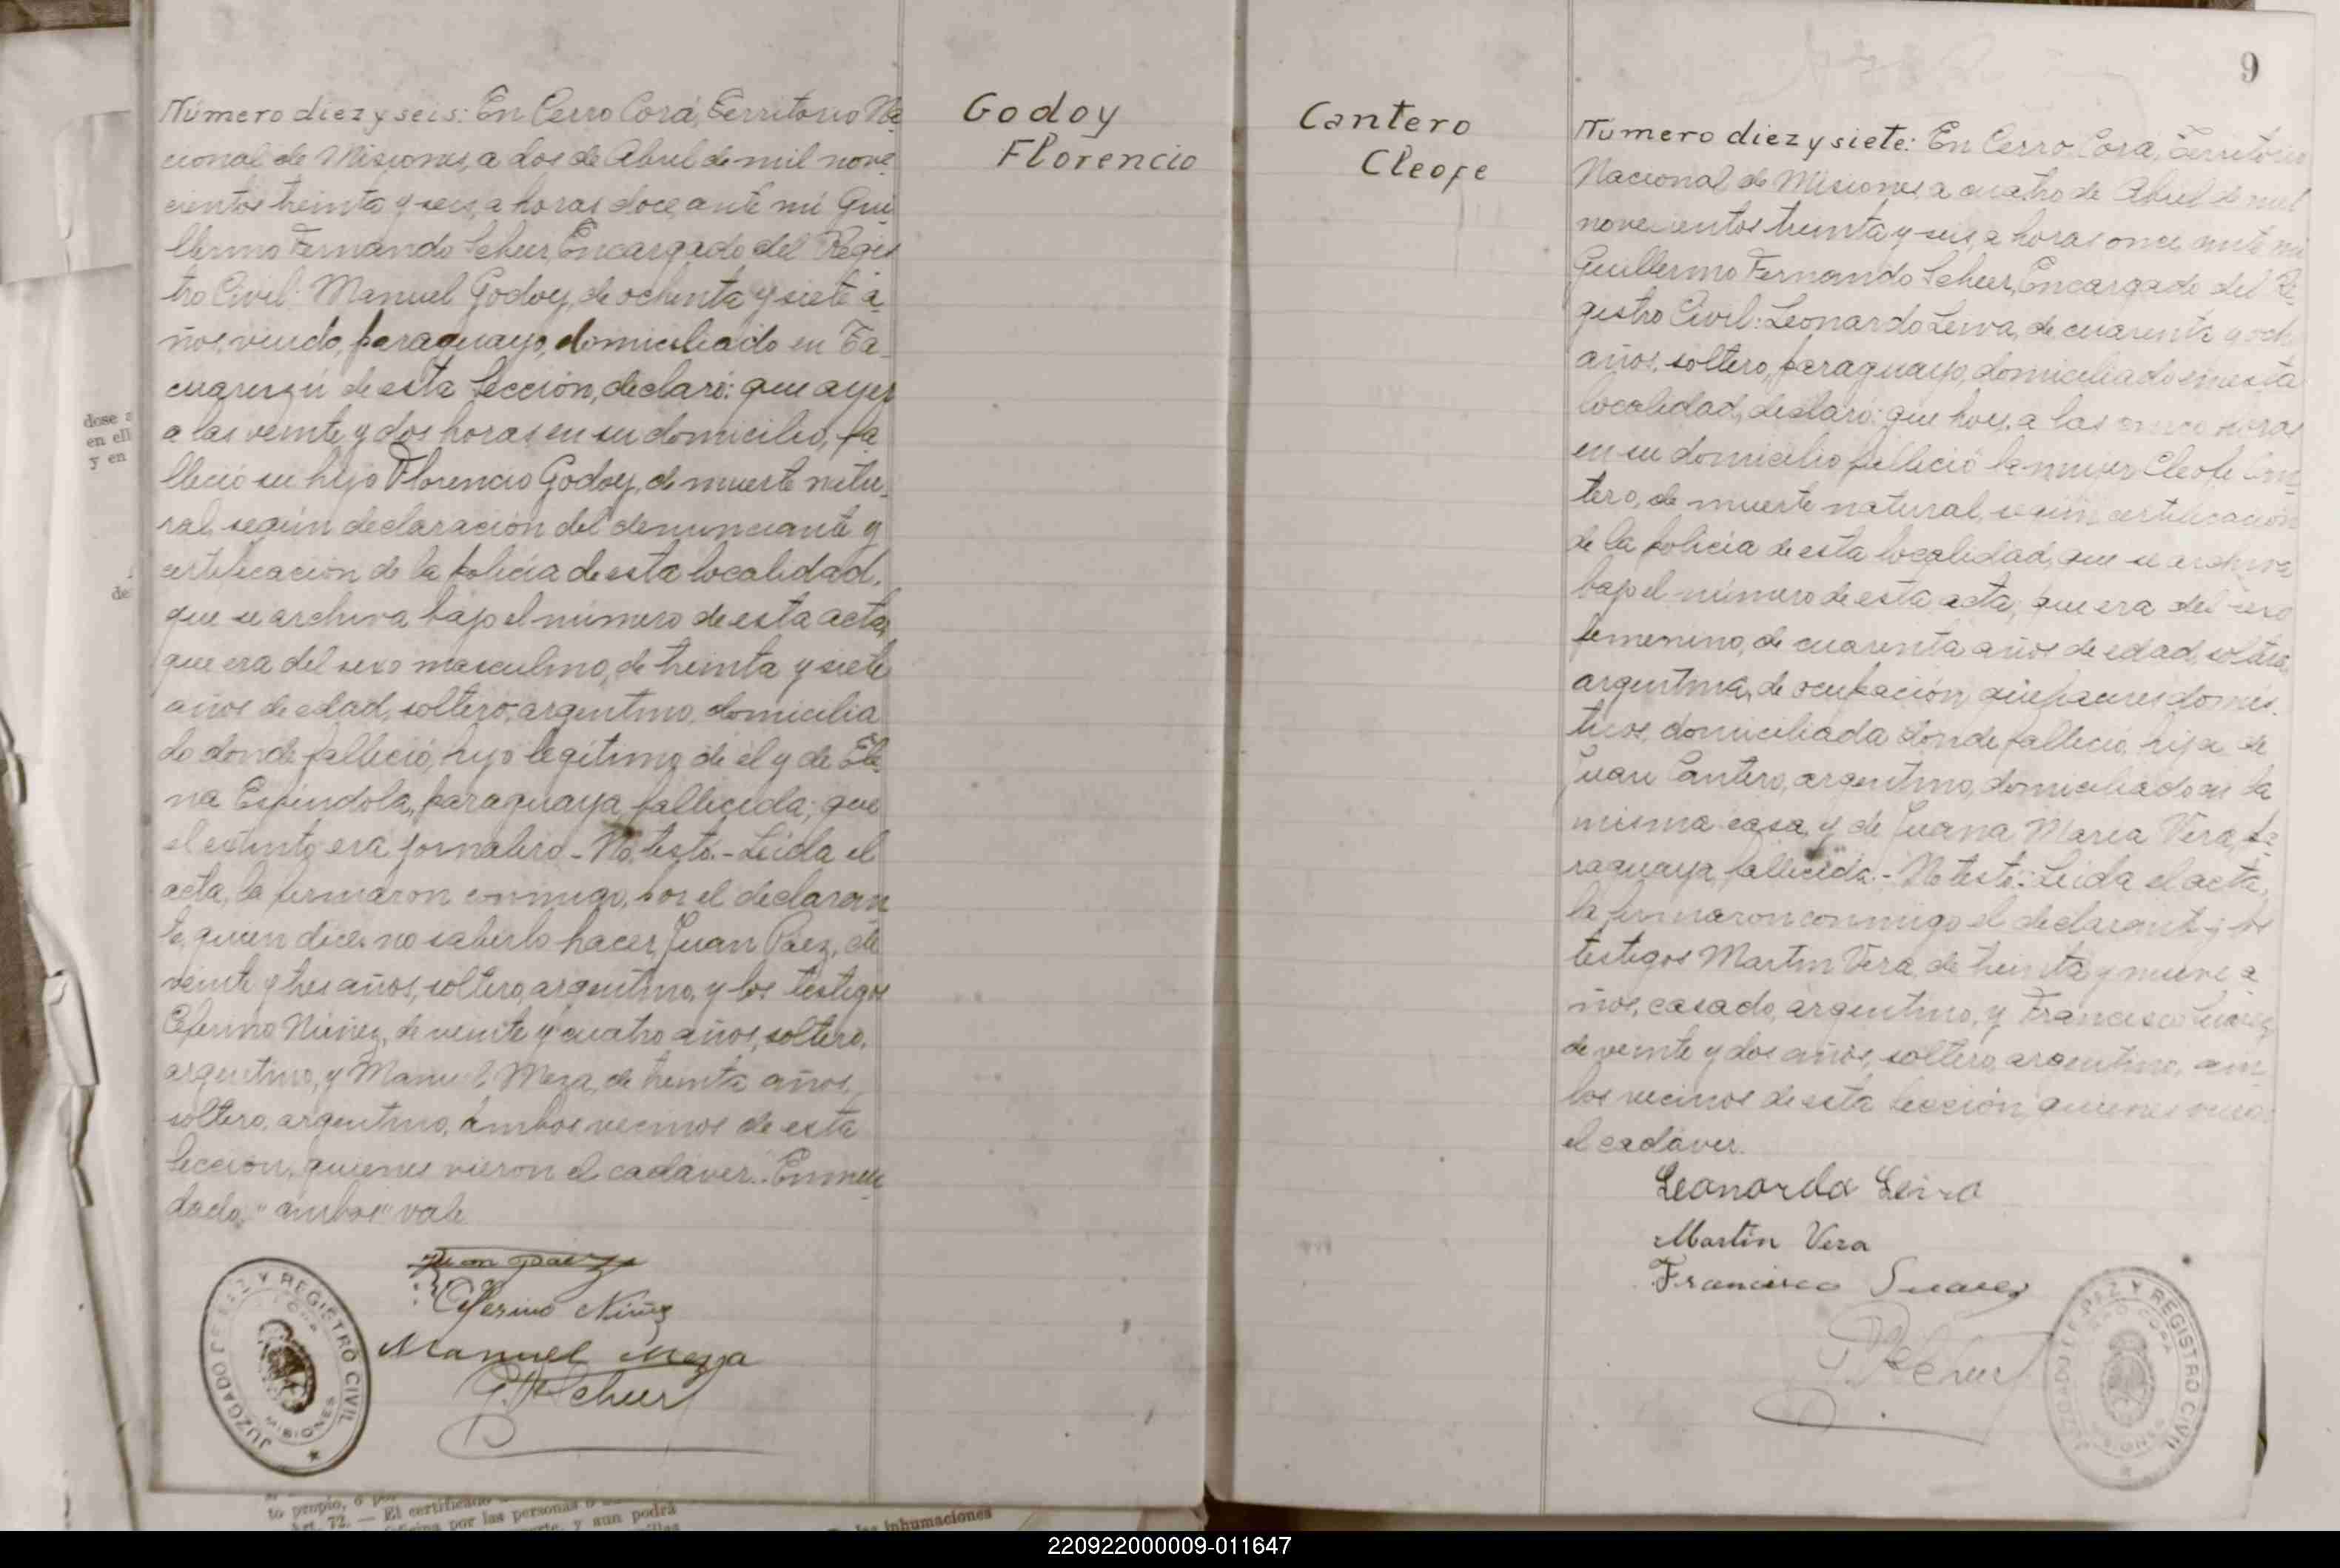 Número diez y seis: En Cerro Corá, Territorio Na-
cional de Misiones, a dos de Abril de mil nove-
cientos treinta y seis, a horas doce, ante mí Gui-
llermo Fernando Scheer, Encargado del Regis
tro Civil: Manuel Godoy, de ochenta y siete a-
ños, viudo, paraguayo, domiciliado en Ta-
cuaruzú de esta Sección, declaró: que ayer
a las veinte y dos horas en su domicilio, fa-
lleció su hijo Florencio Godoy, de muerte natu-
ral, según declaración del denunciante y
certificación de la policía de esta localidad,
que se archiva bajo el número de esta acta,
que era del sexo masculino, de treinta y siete
años de edad, soltero, argentino, domicilia
do donde falleció, hijo legítimo de él y de Ele-
na Espíndola, paraguaya, fallecida; que
el extinto era jornalero - No testó. - Leída el
acta, la firmaron conmigo, por el declaran
te, quien dice no saberlo hacer, Juan Páez, de
veinte y tres años, soltero, argentino, y los testigos
Ceferino Núñez, de veinte y cuatro años, soltero,
argentino, y Manuel Meza, de treinta años,
soltero, argentino, ambos vecinos de esta
Sección, quienes vieron el cadáver. - Enmen
dado: "ambos" vale
Juan Paez
Ceferino Núñez
Manuel Mezza
G. F. Scheer
JUZGADO DE PAZ Y REGISTRO CIVIL
CERRO CORA
MISIONES
Godoy
Florencio
Cantero
Cleofe
9
Número diez y siete: En Cerro Corá, Territorio
Nacional de Misiones, a cuatro de Abril de mil
novecientos treinta y seis, a horas once, ante mí
Guillermo Fernando Scheer, Encargado del Re-
gistro Civil: Leonardo Leiva, de cuarenta y och
años, soltero, paraguayo, domiciliado en esta
localidad, declaró: que hoy, a las horas
en su domicilio falleció la mujer Cleofe Can-
tero, de muerte natural, según certificación
de la policía de esta localidad, que se archiva
bajo el número de esta acta, que era del sexo
femenino, de cuarenta años de edad, soltera,
argentina, de ocupación quehaceres domés-
ticos, domiciliada donde falleció, hija de
Juan Cantero, argentino, domiciliado en la
misma casa, y de Juana María Vera, pa-
raguaya, fallecida. - No testó. - Leída el acta,
la firmaron conmigo el declarante y los
testigos Martín Vera, de treinta y nueve a-
ños, casado, argentino, y Francisco Suarez,
de veinte y dos años, soltero, argentino, am-
bos vecinos de esta Sección, quienes vieron
el cadáver.
Leonardo Leiva
Martín Vera
Francisco Suarez
G. F. Scheer
JUZGADO DE PAZ Y REGISTRO CIVIL
CERRO CORA
MISIONES
dose a
en ell
y en
de
to propio, o po
Art. 72. — El certificado
por las personas o
y aun podrá
las inhumaciones
220922000009-011647